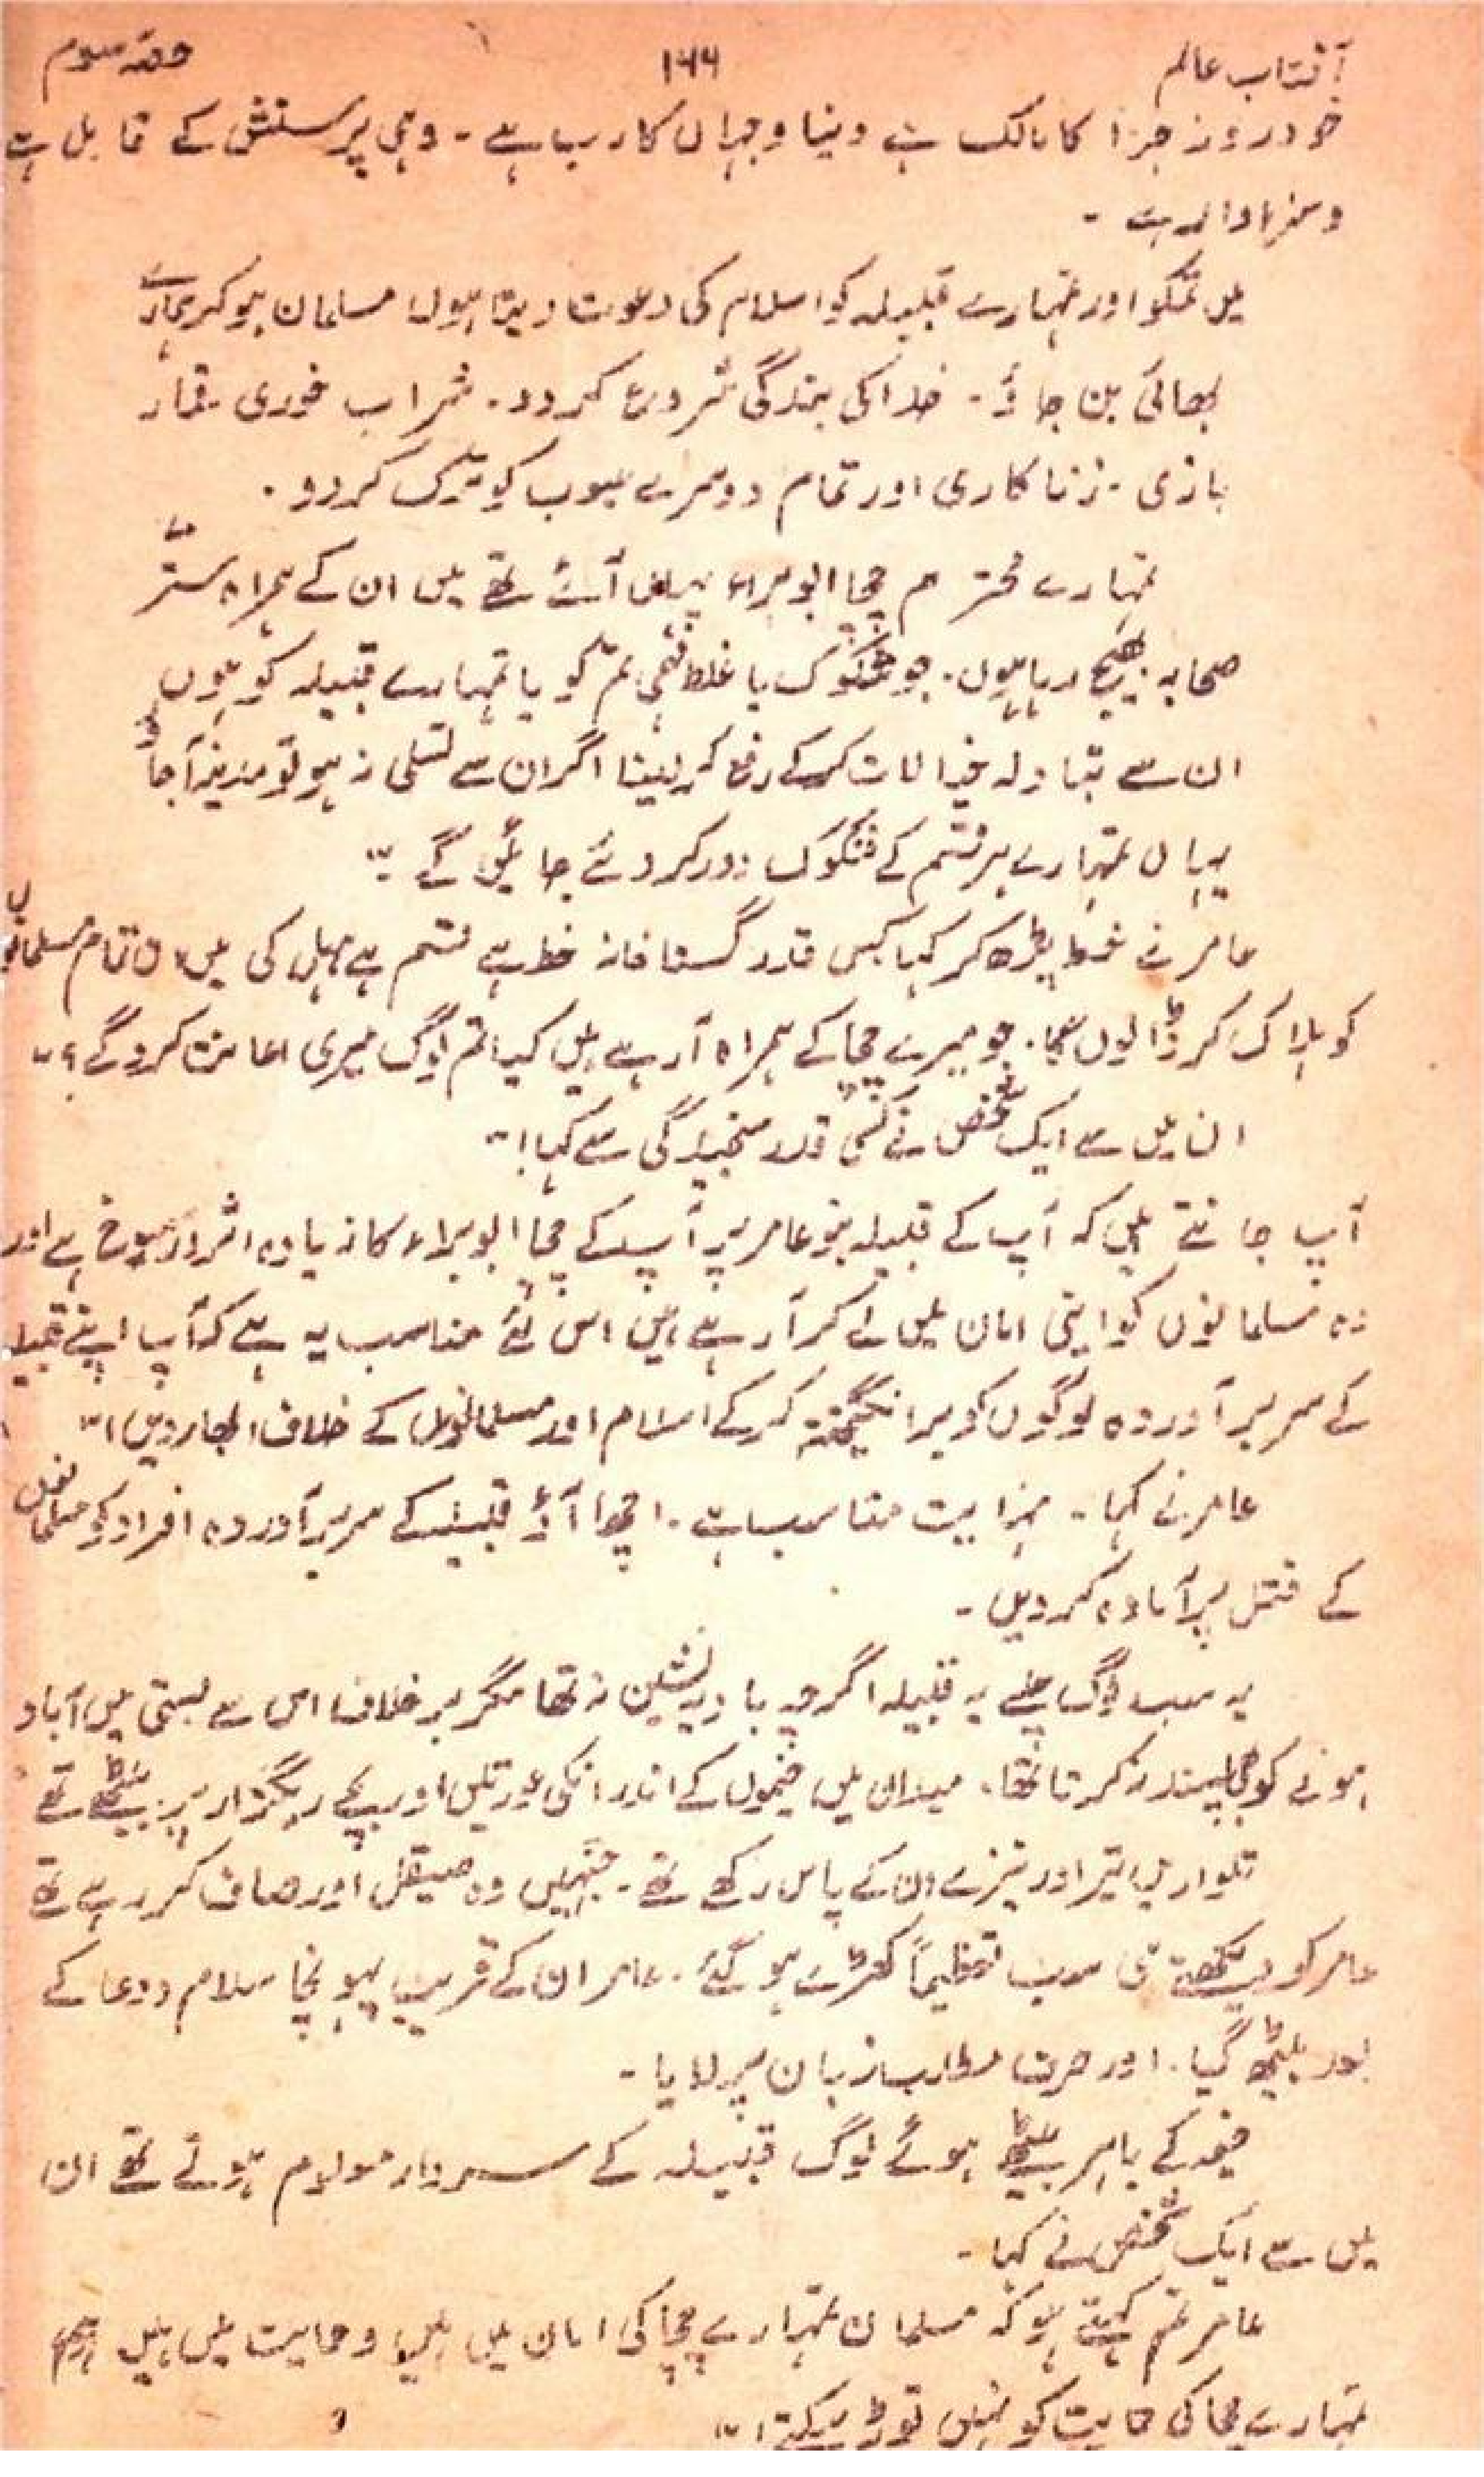 آفتاب عالم ۱۴۴ حصہ سوم
خود روز جزا کا مالک ہے دنیا و جہاں کا رب ہے ۔ وہی پرستش کے قابل ہے
و سزاوار ہے ۔
میں تمکو اور تمہارے قبیلہ کو اسلام کی دعوت دیتا ہوں مسلمان ہو کر ہمارے
بھائی بن جاؤ ۔ خدا کی بندگی شروع کر دو ۔ شراب خوری قمار
بازی ۔ زنا کاری اور تمام دوسرے عیوب کو ترک کر دو ۔
تمہارے محترم چچا ابو براء یہاں آئے تھے میں ان کے ہمراہ ستّر
صحابہ بھیج رہا ہوں ۔ جو شکوک یا غلط فہمی تم کو یا تمہارے قبیلہ کو ہوں
ان سے تبادلہ خیالات کر کے رفع کر لینا اگر ان سے تسلی نہ ہو تو مدینہ آ جاؤ
یہاں تمہارے ہر قسم کے شکوک دور کر دئے جائیں گے ؔ"
عامر نے خط پڑھ کر کہا کس قدر گستاخانہ خط ہے قسم ہے ہبل کی میں ان تمام مسلمانوں
کو ہلاک کر ڈالوں گا ۔ جو میرے چچا کے ہمراہ آ رہے ہیں کیا تم لوگ میری اعانت کرو گے ؟"
ان میں سے ایک شخص نے کسی قدر سنجیدگی سے کہا !"
آپ جانتے ہیں کہ آپ کے قبیلہ بنو عامر پر آپ کے چچا ابو براء کا زیادہ اثر و رسوخ ہے اور
وہ مسلمانوں کو اپنی امان میں لے کر آ رہے ہیں اس لئے مناسب یہ ہے کہ آپ اپنے قبیلہ
کے سر بر آوردہ لوگوں کو برانگیختہ کر کے اسلام اور مسلمانوں کے خلاف ابھار دیں !"
عامر نے کہا ۔ نہایت مناسب ہے ۔ اچھا آؤ قبیلے کے سر بر آوردہ افراد کو مسلمانوں
کے قتل پر آمادہ کر دیں ۔
یہ سب لوگ چلے یہ قبیلہ اگرچہ بادیہ نشین نہ تھا مگر بر خلاف اس سے بستی میں آباد
ہونے کو بھی پسند نہ کرتا تھا ۔ میدان میں خیموں کے اندر انکی عورتیں اور بچے ریگزار پر بیٹھے تھے
تلواریں تیر اور نیزے ان کے پاس رکھے تھے ۔ جنہیں وہ صیقل اور صاف کر رہے تھے
عامر کو دیکھتے ہی سب تعظیماً کھڑے ہو گئے ۔ عامر ان کے قریب پہونچا سلام و دعا کے
بعد بیٹھ گیا ۔ اور حرف مطلب زبان پر لایا ۔
خیمہ کے باہر بیٹھے ہوئے لوگ قبیلہ کے سردار معلوم ہوتے تھے ان
میں سے ایک شخص نے کہا ۔
عامر تم کہتے ہو کہ مسلمان تمہارے چچا کی امان میں ہیں و حمایت میں ہیں ہم
تمہارے چچا کی حمایت کو نہیں توڑ سکتے !"